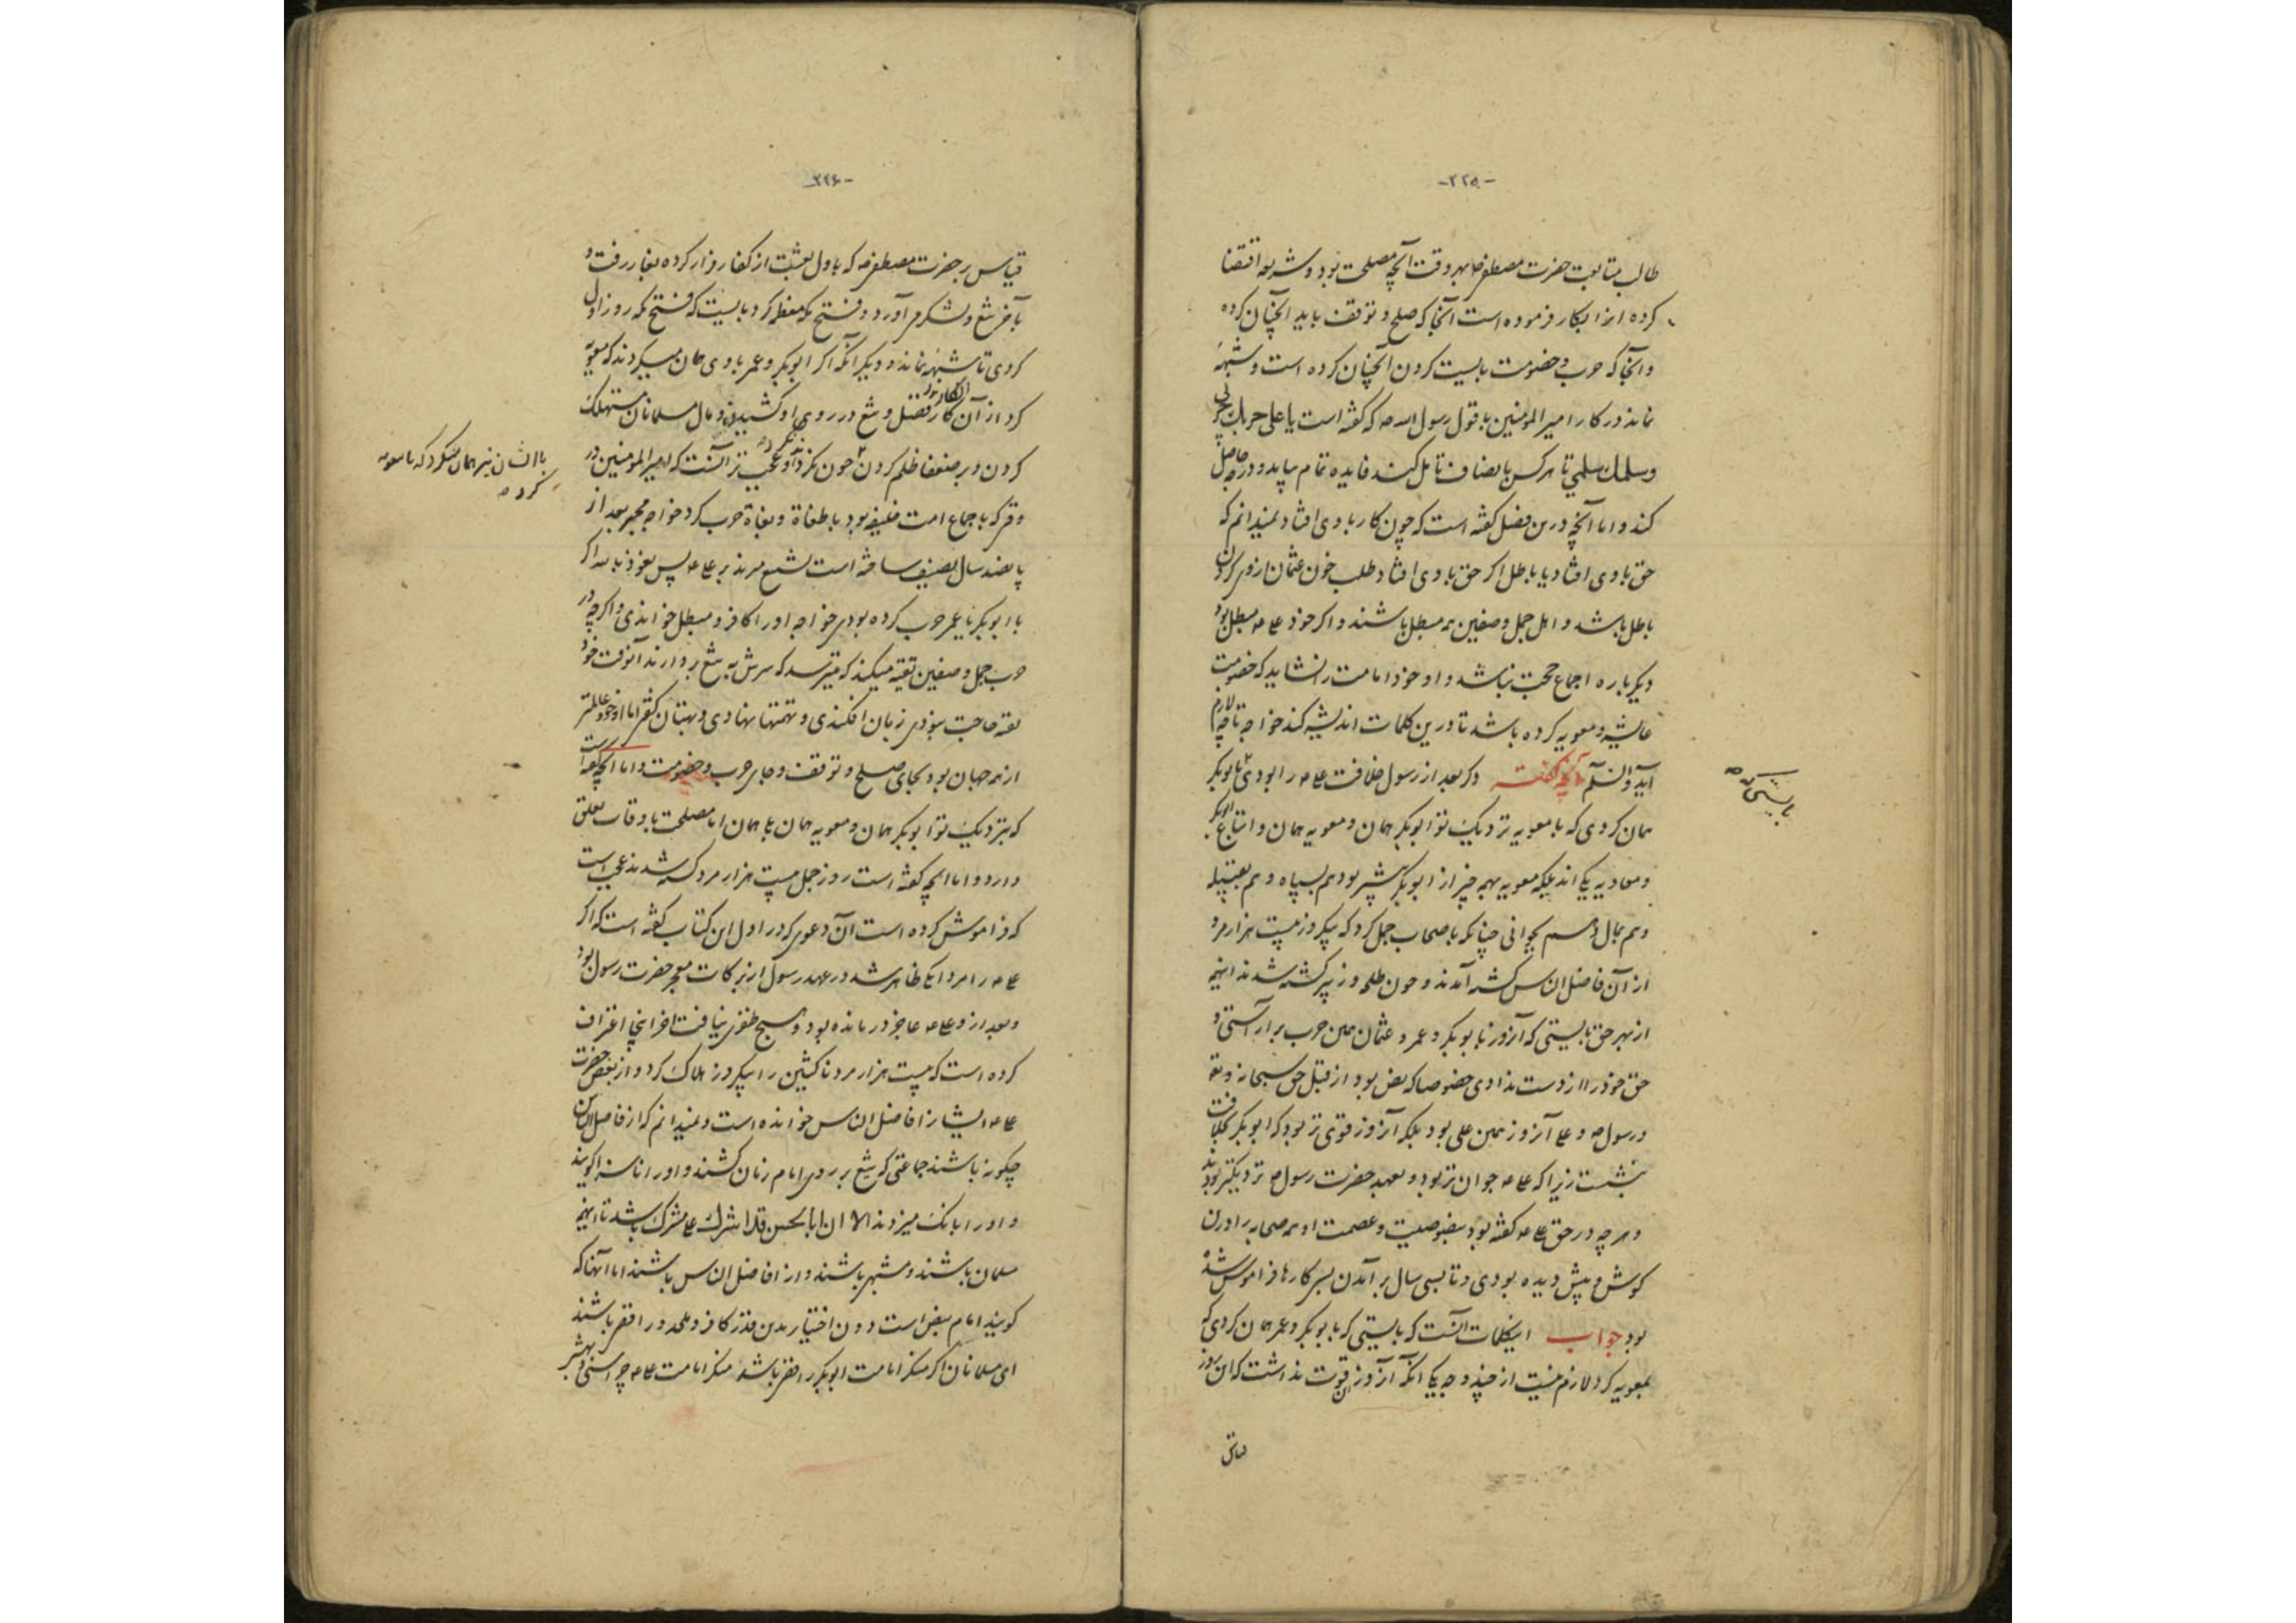 -۲۲۵-
طالب متابعت حضرت مصطفی ص بهر وقت آنچه مصلحت بود و شریعه اقتضا
کرده از انکار فرموده است آنجا که صلح و توقف باید آنچنان کرده
و آنجا که حرب و خصومت بایست کردن آنچنان کرده است و شبههٔ
نماند در کار امیر المومنین با قول رسول الله ص که گفته است یا علی حربك حربی
و سلمك سلمي تا هر کس بانصاف تامل کند فایده تمام بیابد و درجه حاصل
کند و اما آنچه درین فصل گفته است که چون کار با وی افتاد نمیدانم که
حق با وی افتاد یا باطل اگر حق با وی افتاد طلب خون عثمان از وی کردن
باطل باشد و اهل جمل و صفین همه مبطل باشند و اگر خود علی ع مبطل بود
دیگر باره اجماع حجت نباشد و او خود امامت را نشاید که خصومت
عایشه و معویه کرده باشد تا درین کلمات اندیشه کند خواجه تا چه لازم
آید والسلم آنچه گفته دگر بعد از رسول خلافت علی ع را بودی با ابوبکر
همان کردی که با معویه نزدیک تو ابوبکر همان و معویه همان و اتباع ابوبکر
و معاویه یکی اند بلکه معویه بهمه چیز از ابوبکر بیشتر بود هم بسپاه و هم بقبیله
و هم بمال و هم بجوانی چنانکه باصحاب جمل کرد که بیکروز بیست هزار مرد
از آن فاضل الناس کشته آمدند و چون طلحه و زبیر کشته شدند اینهمه
از بهر حق بایستی که آنروز با بوبکر و عمر و عثمان همین حرب برآراستی و
حق خود را از دست ندادی خصوصا که نص بود از قبل حق سبحانه و تع
و رسول ص و علی آنروز همین علی بود بلکه آنروز قوی تر بود که ابوبکر بخلافت
بنشست زیرا که علی ع جوان تر بود و بعهد حضرت رسول ص نزدیکتر بودند
و هر چه در حق علی ع گفته بود بنصوصیت و عصمت او همه صحابه را در آن
گوش و پیش دیده بودی و تا بسی سال بر آمدن بسر کارها فراموش شده
بود جواب اینکلمات آنست که بایستی که با بوبکر و عمر همان کردی که
بمعویه کرد لازم نیست از چند وجه یکی آنکه آنروز آن قوت نداشت که آن روز
بایستی که ص
-۲۲۶-
قیاس بر حضرت مصطفی ص که باول بعثت از کفار فرار کرده بغار رفت و
بآخر تیغ و لشکر برآورد و فتح مکه معظمه کرد بایست که فتح مکه روز اول
کردی تا شبهه نماند و دیگر آنکه اگر ابوبکر و عمر با وی همان میکردند که معویه
کرد از آن کار قتل و تیغ در روی او کشیدن و مال مسلمانان مستهلک
کردن و بر ضعفا ظلم کردن چون نکرد او عجب تر آنست که امیر المومنین در
وقتی که باجماع امت خلیفه بود با طغاة و بغاة حرب کرد خواجه مجبر بعد از
پانصد سال تصنیف ساخته است تشنیع میزند بر علی ع پس نعوذ بالله اگر
با ابوبکر یا عمر حرب کرده بودی خواجه او را کافر و مبطل خواندی و اگر چه در
حرب جمل و صفین تقیه میکند که میترسد که سرش به تیغ بردارند آنوقت خود
تقیه حاجت نبودی زبان افکندی و تهمتها نهادی و بهتان گفتی اما او خود عالمتر
از همه جهان بود بجای صلح و توقف و جای حرب و خصومت و اما آنچه گفته است
که نزدیک تو ابوبکر همان و معویه همان بلی همان اما مصلحت باوقات تعلق
دارد و اما آنچه گفته است روز جمل بیست هزار مرد کشته شدند عجب است
که فراموش کرده است آن دعوی که در اول این کتاب گفته است که اگر
علی ع را مردانگی ظاهر شد در عهد رسول از برکات معجز حضرت رسول بود
و بعد از و علی ع عاجز درمانده بود و هیچ ظفری نیافت آخر اینجا اعتراف
کرده است که بیست هزار مرد ناکثین را بیکروز هلاک کرد و از بغض حضرت
علی ع ایشان را فاضل الناس خوانده است و نمیدانم که از فاضل الناس
چگونه باشند جماعتی که تیغ بر روی امام زمان کشند و او را ناسزا گویند
و او را بانک میزدند الا ان ابا الحسن قد اشرك علی مشرک باشد تا اینهمه
مسلمان باشند و مشهر باشند و از افاضل الناس باشند اما آنها که
گویند امام بنص است دون اختیار بدین قدر کافر و ملحد و رافضی باشند
ای مسلمانان اگر منکر امامت ابوبکر رافضی باشد منکر امامت علی ع چرا سنی و مبشر
با ایشان نیز همان میکرد که با معویه
کرد ص